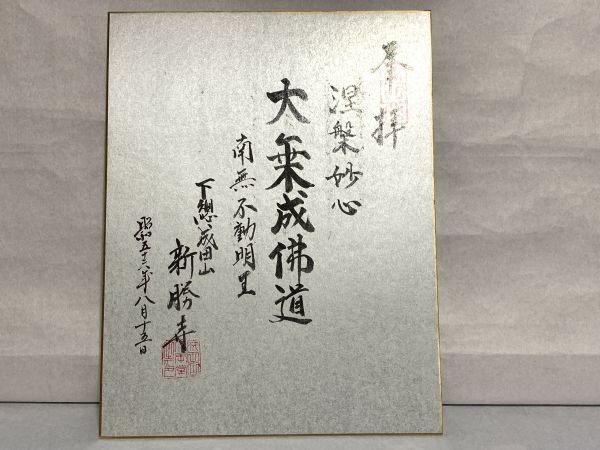 奉拝
涅槃妙心
大乗成佛道
南無不動明王
下總成田山
新勝寺
昭和五十六年八月十五日